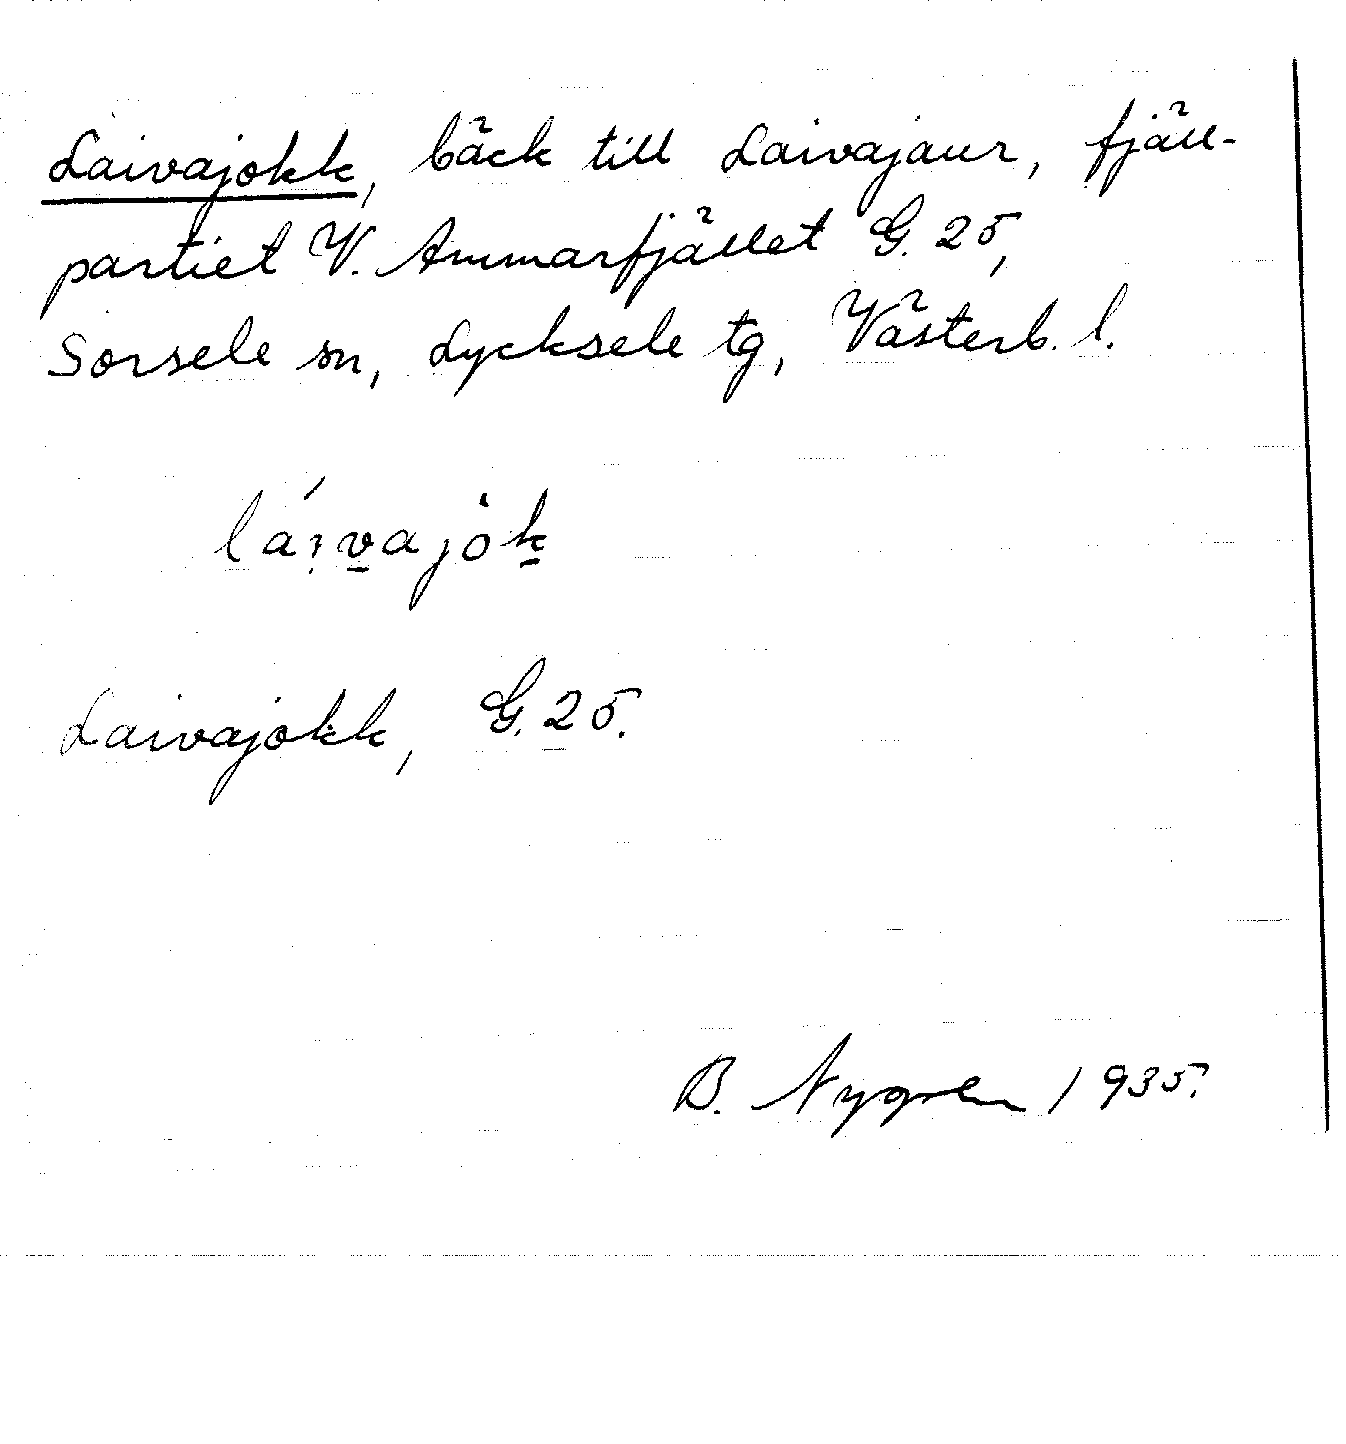 Laivajokk, bäck till Laivajaur, fjäll-
partiet V. Ammarfjället G. 25,
Sorsele sn, Lycksele tg, Västerb. l.
láiv̲ajȯk̲
Laivajokk, G. 25.
B. Nygren 1935.